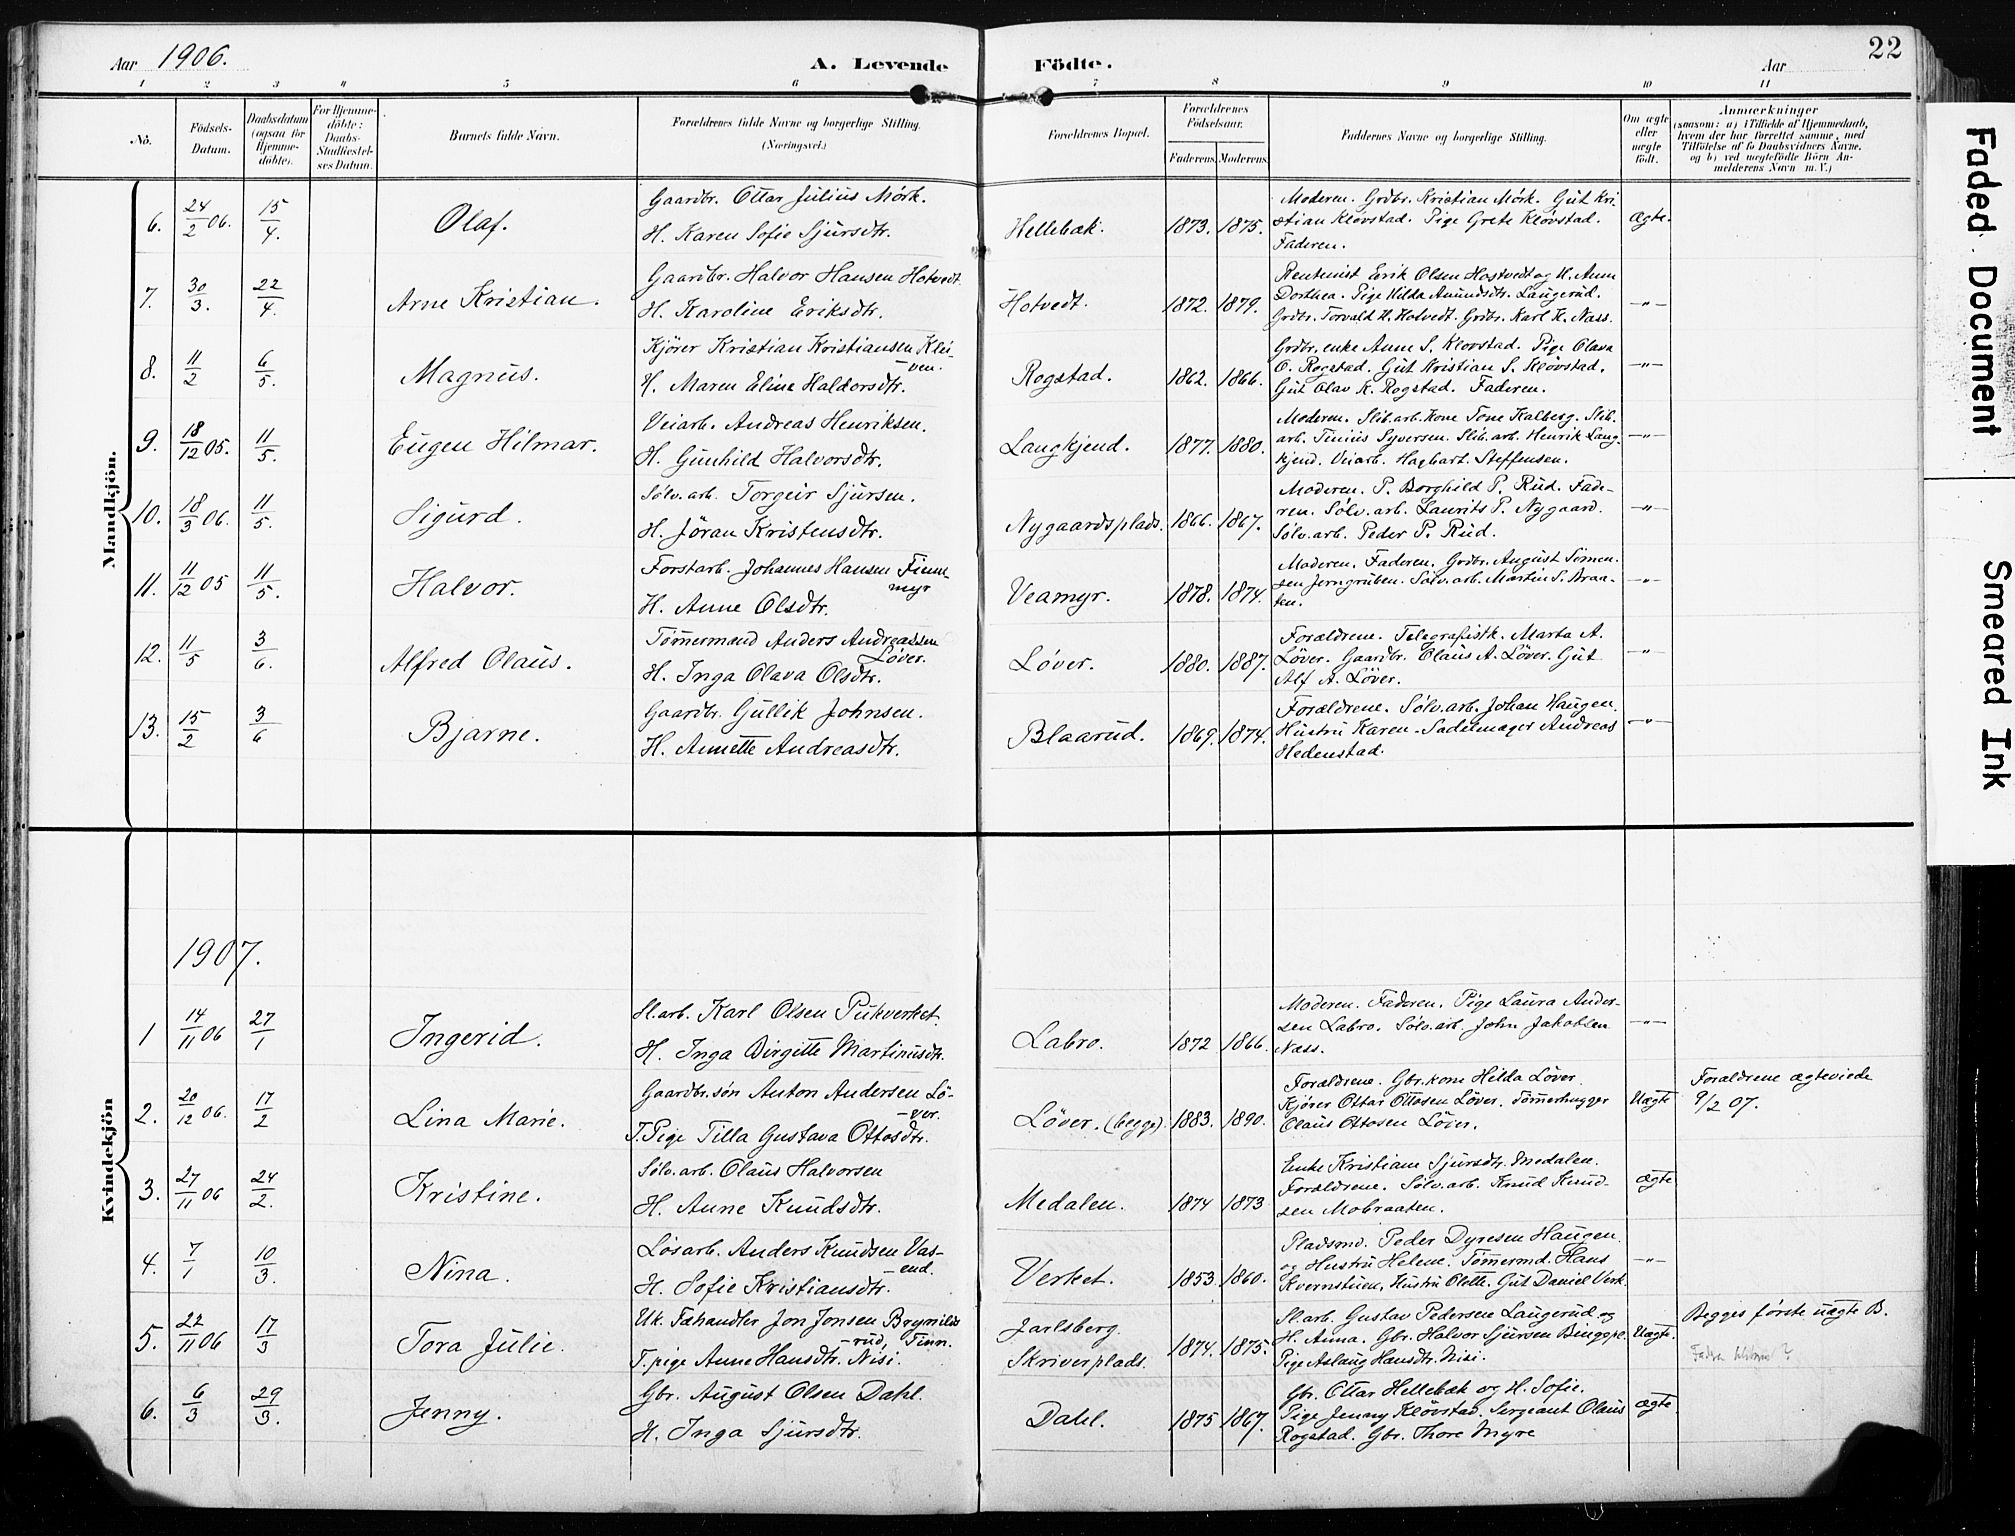 Aar 1906. A. Levende Födte. Aar 22
1 2 3 " 5 6 7 8 9 10 11
No. Födsels-Datum. Daabsdatum (ogsaa for Hjemmedöbte). For Hjemmedöbte: Daabs-Stadfæstelses Datum. Barnets fulde Navn. Forældrenes fulde Navne og borgerlige Stilling. (Næringsvei.) Forældrenes Bopæl. Forældrenes Födselsaar. Faderens. Moderens. Faddernes Navne og borgerlige Stilling. Om ægte eller uægte födt. Anmærkninger (saasom: a) i Tilfælde af Hjemmedaab, hvem der har forrettet samme, med Tilföielse af to Daabsvidners Navne, og b) ved uægtefödte Börn Anmelderens Navn m. V.)
Mandkjön.
6. 24/2 06. 15/4. Olaf. Gaardbr. Ottar Julius Mörk. H. Karen Sofie Sjursdtr. Hellebæk. 1873. 1875. Moderen. Grdbr. Kristian Mörk. Gut Kristian Klövstad. Pige Grete Klövstad. Faderen. Ægte.
7. 30/3. 22/4. Arne Kristian. Gaardbr. Halvor Hansen Hotvedt. H. Karoline Eriksdtr. Hotvedt. 1872. 1879. Rentenist Erik Olsen Hostvedt og H. Anne Dorthea. Pige Hilda Amundsdtr. Laugerud. Grdbr. Torvald H. Hotvedt. Grdbr. Karl K. Næss. -"-
8. 11/2 6/5. Magnus. Kjörer Kristian Kristiansen Kleiven. H. Maren Eline Haldorsdtr. Rogstad. 1862. 1866. Grdbr. enke Anne S. Klovstad. Pige Olava O. Rogstad. Gut Kristian S. Klövstad. Gut Olav K. Rogstad. Faderen. -"-
9. 18/12 05. 11/5. Eugen Hilmar. Veiarb. Andreas Henriksen. H. Gunhild Halvorsdtr. Langkjend. 1877. 1880. Moderen. Slib.arb. kone Tone Kalberg. Slib.arb. Tinius Syversen. Slib.arb. Henrik Langkjend. Veiarb. Hagbart Steffensen. -"-
10. 18/3 06. 11/5. Sigurd. Sölv.arb. Torgeir Sjursen. H. Jöran Kristensdtr. Nygaardsplads. 1866. 1867. Moderen. P. Borghild P. Rud. Faderen. Sölv.arb. Laurits P. Nygaard. Sölv.arb. Peder P. Rud. -"-
11. 11/12 05 11/5. Halvor. Forstarb. Johannes Hansen Finnemyr H. Anne Olsdtr. Veamyr. 1878. 1874. Moderen. Faderen. Grdbr. August Simensen Jerngruben. Sölv.arb. Martin S. Braaten. -"-
12. 11/5 3/6. Alfred Olaus. Tömmermand Anders Andreassen Löver. H. Inga Olava Olsdtr. Löver. 1880. 1887. Forældrene. Telegrafistk. Marta A. Löver. Gaardbr. Olaus A. Löver. Gut Alf A. Löver. -"-
13. 15/2 3/6 Bjarne. Gaardbr. Gullik Johnsen. H. Annette Andreasdtr. Blaarud. 1869. 1874. Forældrene. Sölv.arb. Johan Haugen. Hustru Karen. Sadelmager Andreas Hedenstad. -"-
1907.
Kvindekjön
1 14/11 06 27/1 Ingerid. Sl.arb. Karl Olsen Pukverket. H. Inga Birgitte Martinusdtr. Labro. 1872 1866. Moderen. Faderen. Pige Laura Andersen Labro. Sölv.arb. John Jakobsen Næss. -"-
2. 20/12 06. 17/2 Lina Marie. Gaardbr.sön Anton Andersen Löver. T.Pige Tilla Gustava Ottosdtr. Löver. (begge). 1883. 1890. Forældrene. Gbr.kone Hilda Löver. Kjörer Ottar Ottosen Löver. Tömmerhugger Olaus Ottosen Löver. Uægte Forældrene ægteviede 9/2 07.
3. 27/11 06 24/2. Kristine. Sölv.arb. Olaus Halvorsen H. Anne Knudsdtr. Medalen. 1874 1873 Enke Kristiane Sjursdtr. Medalen. Forældrene. Sölv.arb. Knud Knudsen Mobraaten. ægte
4. 7/1 10/3. Nina. Lösarb. Anders Knudsen Vasend. H. Sofie Kristiansdtr. Verket. 1853. 1860. Pladsmd. Peder Dyresen Haugen og Hustru Helene. Tömmermd. Hans Kvernstuen, Hustru Olette. Gut Daniel Verk. -"-
5. 22/11 06 17/3 Tora Julie. Uk. Fæhandler Jon Jonsen Brynilds-rud, Tinn. T.pige Anne Hansdtr. Nisi. Jarlsberg. Skriverplads. 1874. 1875. Sl.arb. Gustav Pedersen Laugerud og H. Anna. Gbr. Halvor Sjursen Binggpl. Pige Aslaug Hansdtr. Nisi. Uægte. Begges förste uægte B.
6. 6/3 29/3. Jenny. Gbr. August Olsen Dahl. H. Inga Sjursdtr. Dahl. 1875 1867. Gbr. Ottar Hellebæk og H. Sofie. Pige Jenny Klövstad. Sergeant Olaus Rogstad. Gbr. Thore Myre ægte.
Faded Document
Smeared Ink